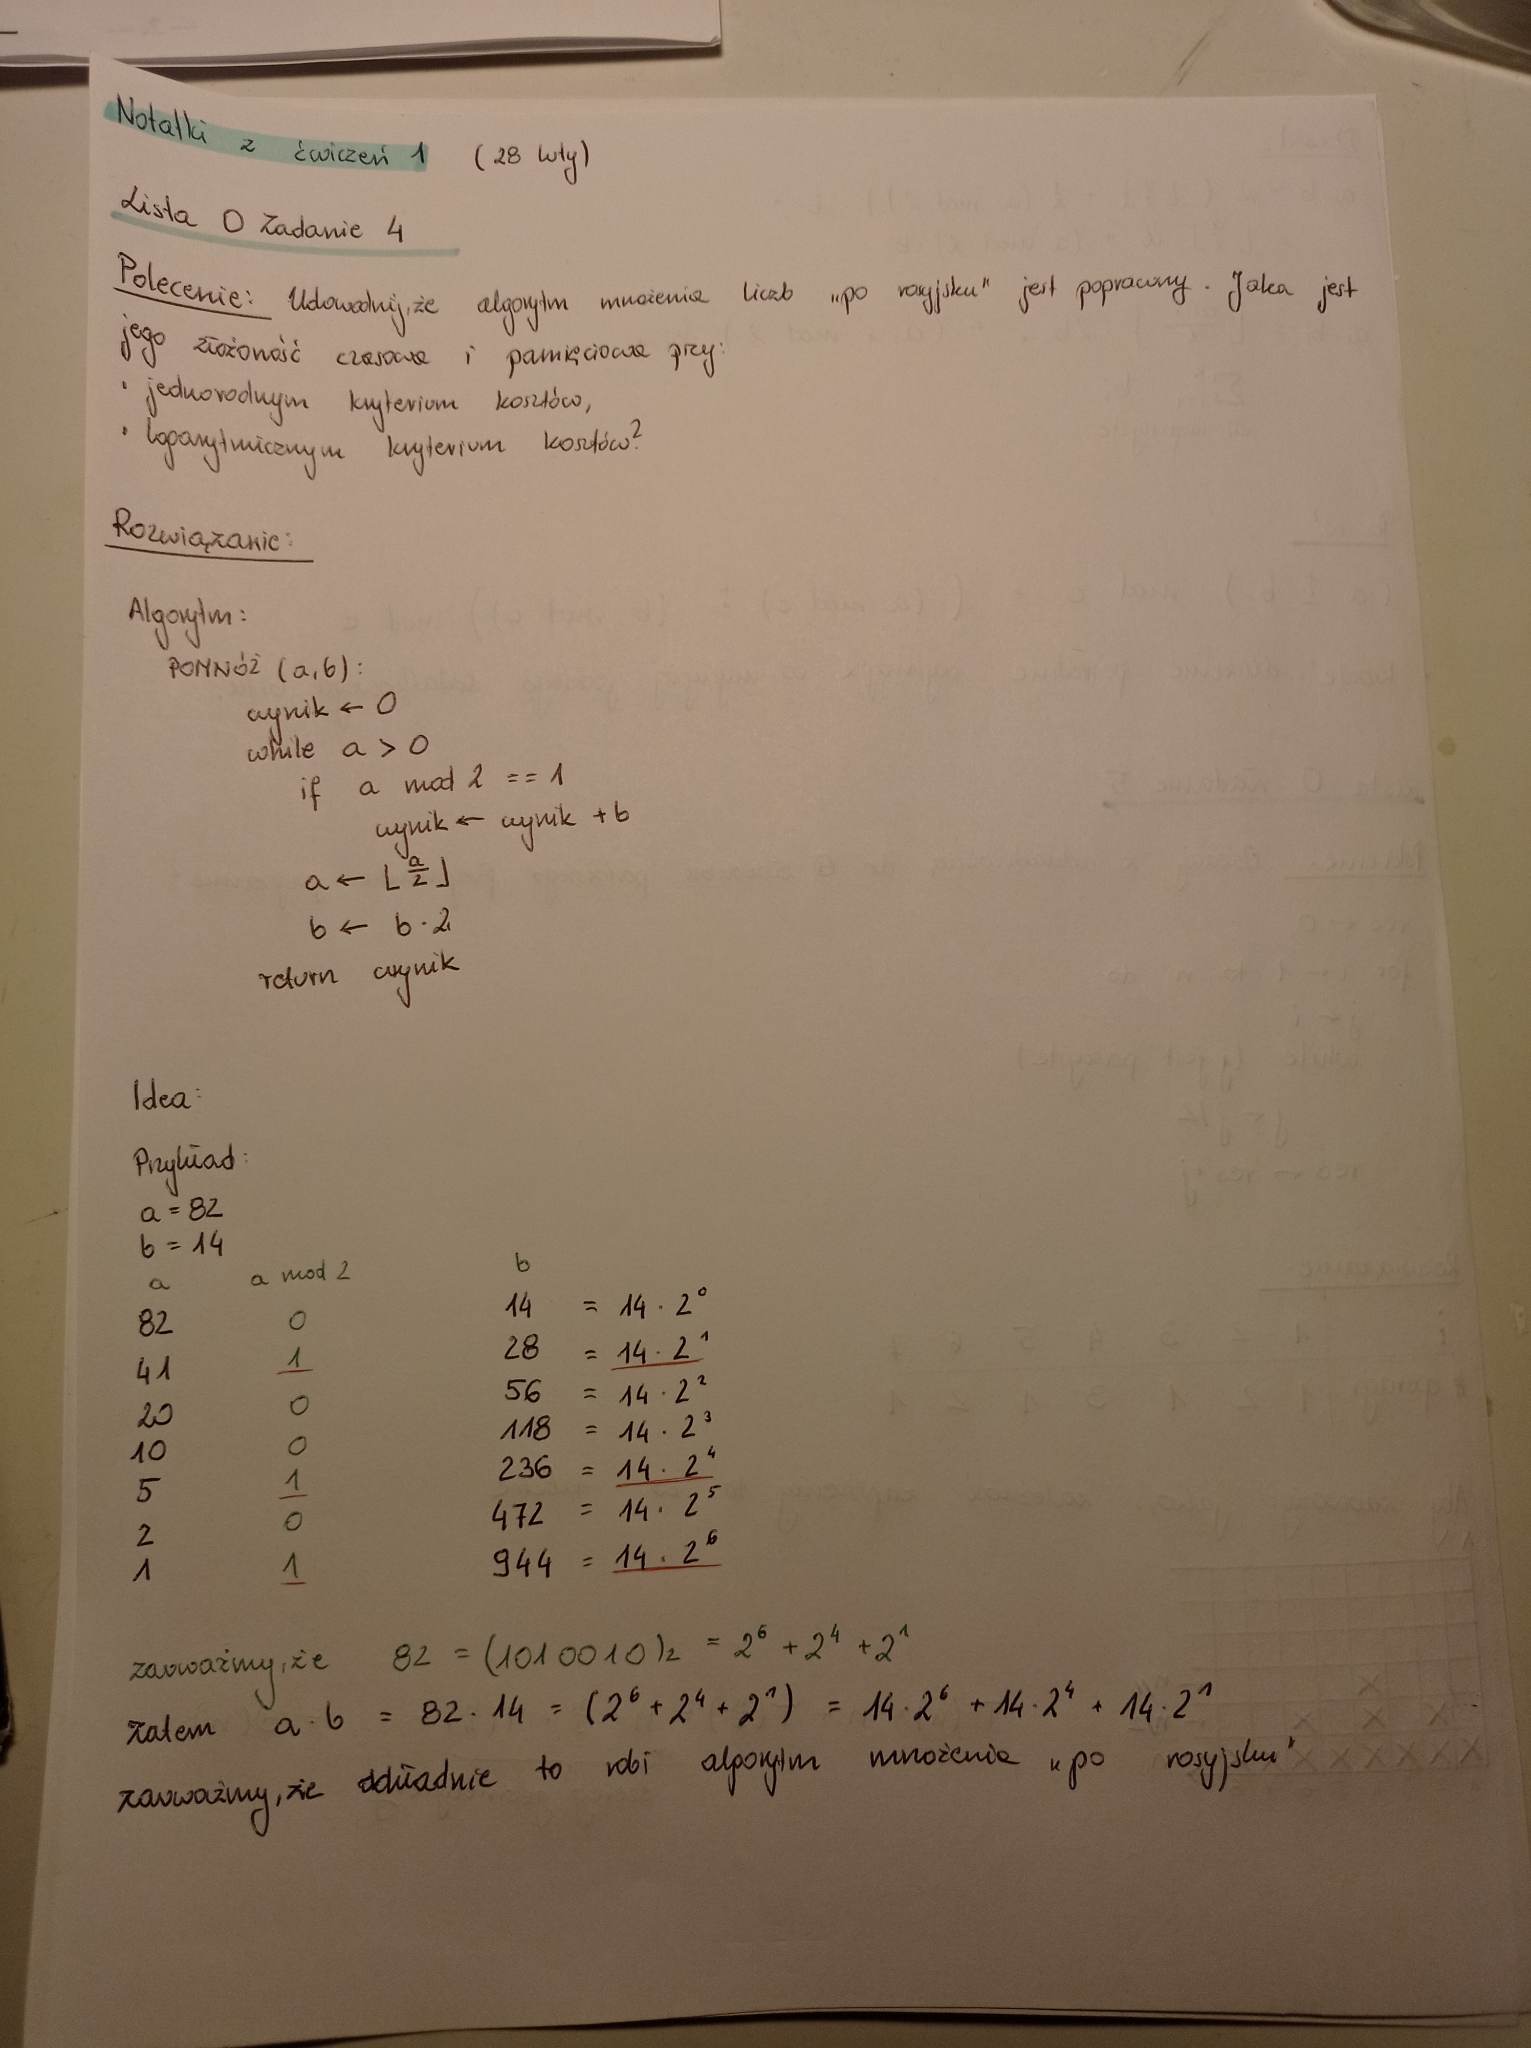 Notatki z ćwiczeń 1 (28 luty)
Lista 0 Zadanie 4
Polecenie: Udowodnij, że algorytm mnożenia liczb „po rosyjsku" jest poprawny. Jaka jest
jego złożoność czasowa i pamięciowa przy:
• jednorodnym kryterium kosztów,
• logarytmicznym kryterium kosztów?
Rozwiązanie:
Algorytm:
POMNÓŻ (a,b):
wynik ← 0
while a > 0
if a mod 2 == 1
wynik ← wynik + b
a ← ⌊a/2⌋
b ← b · 2
return wynik
Idea:
Przykład:
a = 82
b = 14
a a mod 2 b
82 0 14 = 14 · 2⁰
41 1 28 = 14 · 2¹
20 0 56 = 14 · 2²
10 0 118 = 14 · 2³
5 1 236 = 14 · 2⁴
2 0 472 = 14 · 2⁵
1 1 944 = 14 · 2⁶
zauważmy, że 82 = (1010010)₂ = 2⁶ + 2⁴ + 2¹
zatem a · b = 82 · 14 = (2⁶ + 2⁴ + 2¹) = 14 · 2⁶ + 14 · 2⁴ + 14 · 2¹
zauważmy, że dokładnie to robi algorytm mnożenia „po rosyjsku"